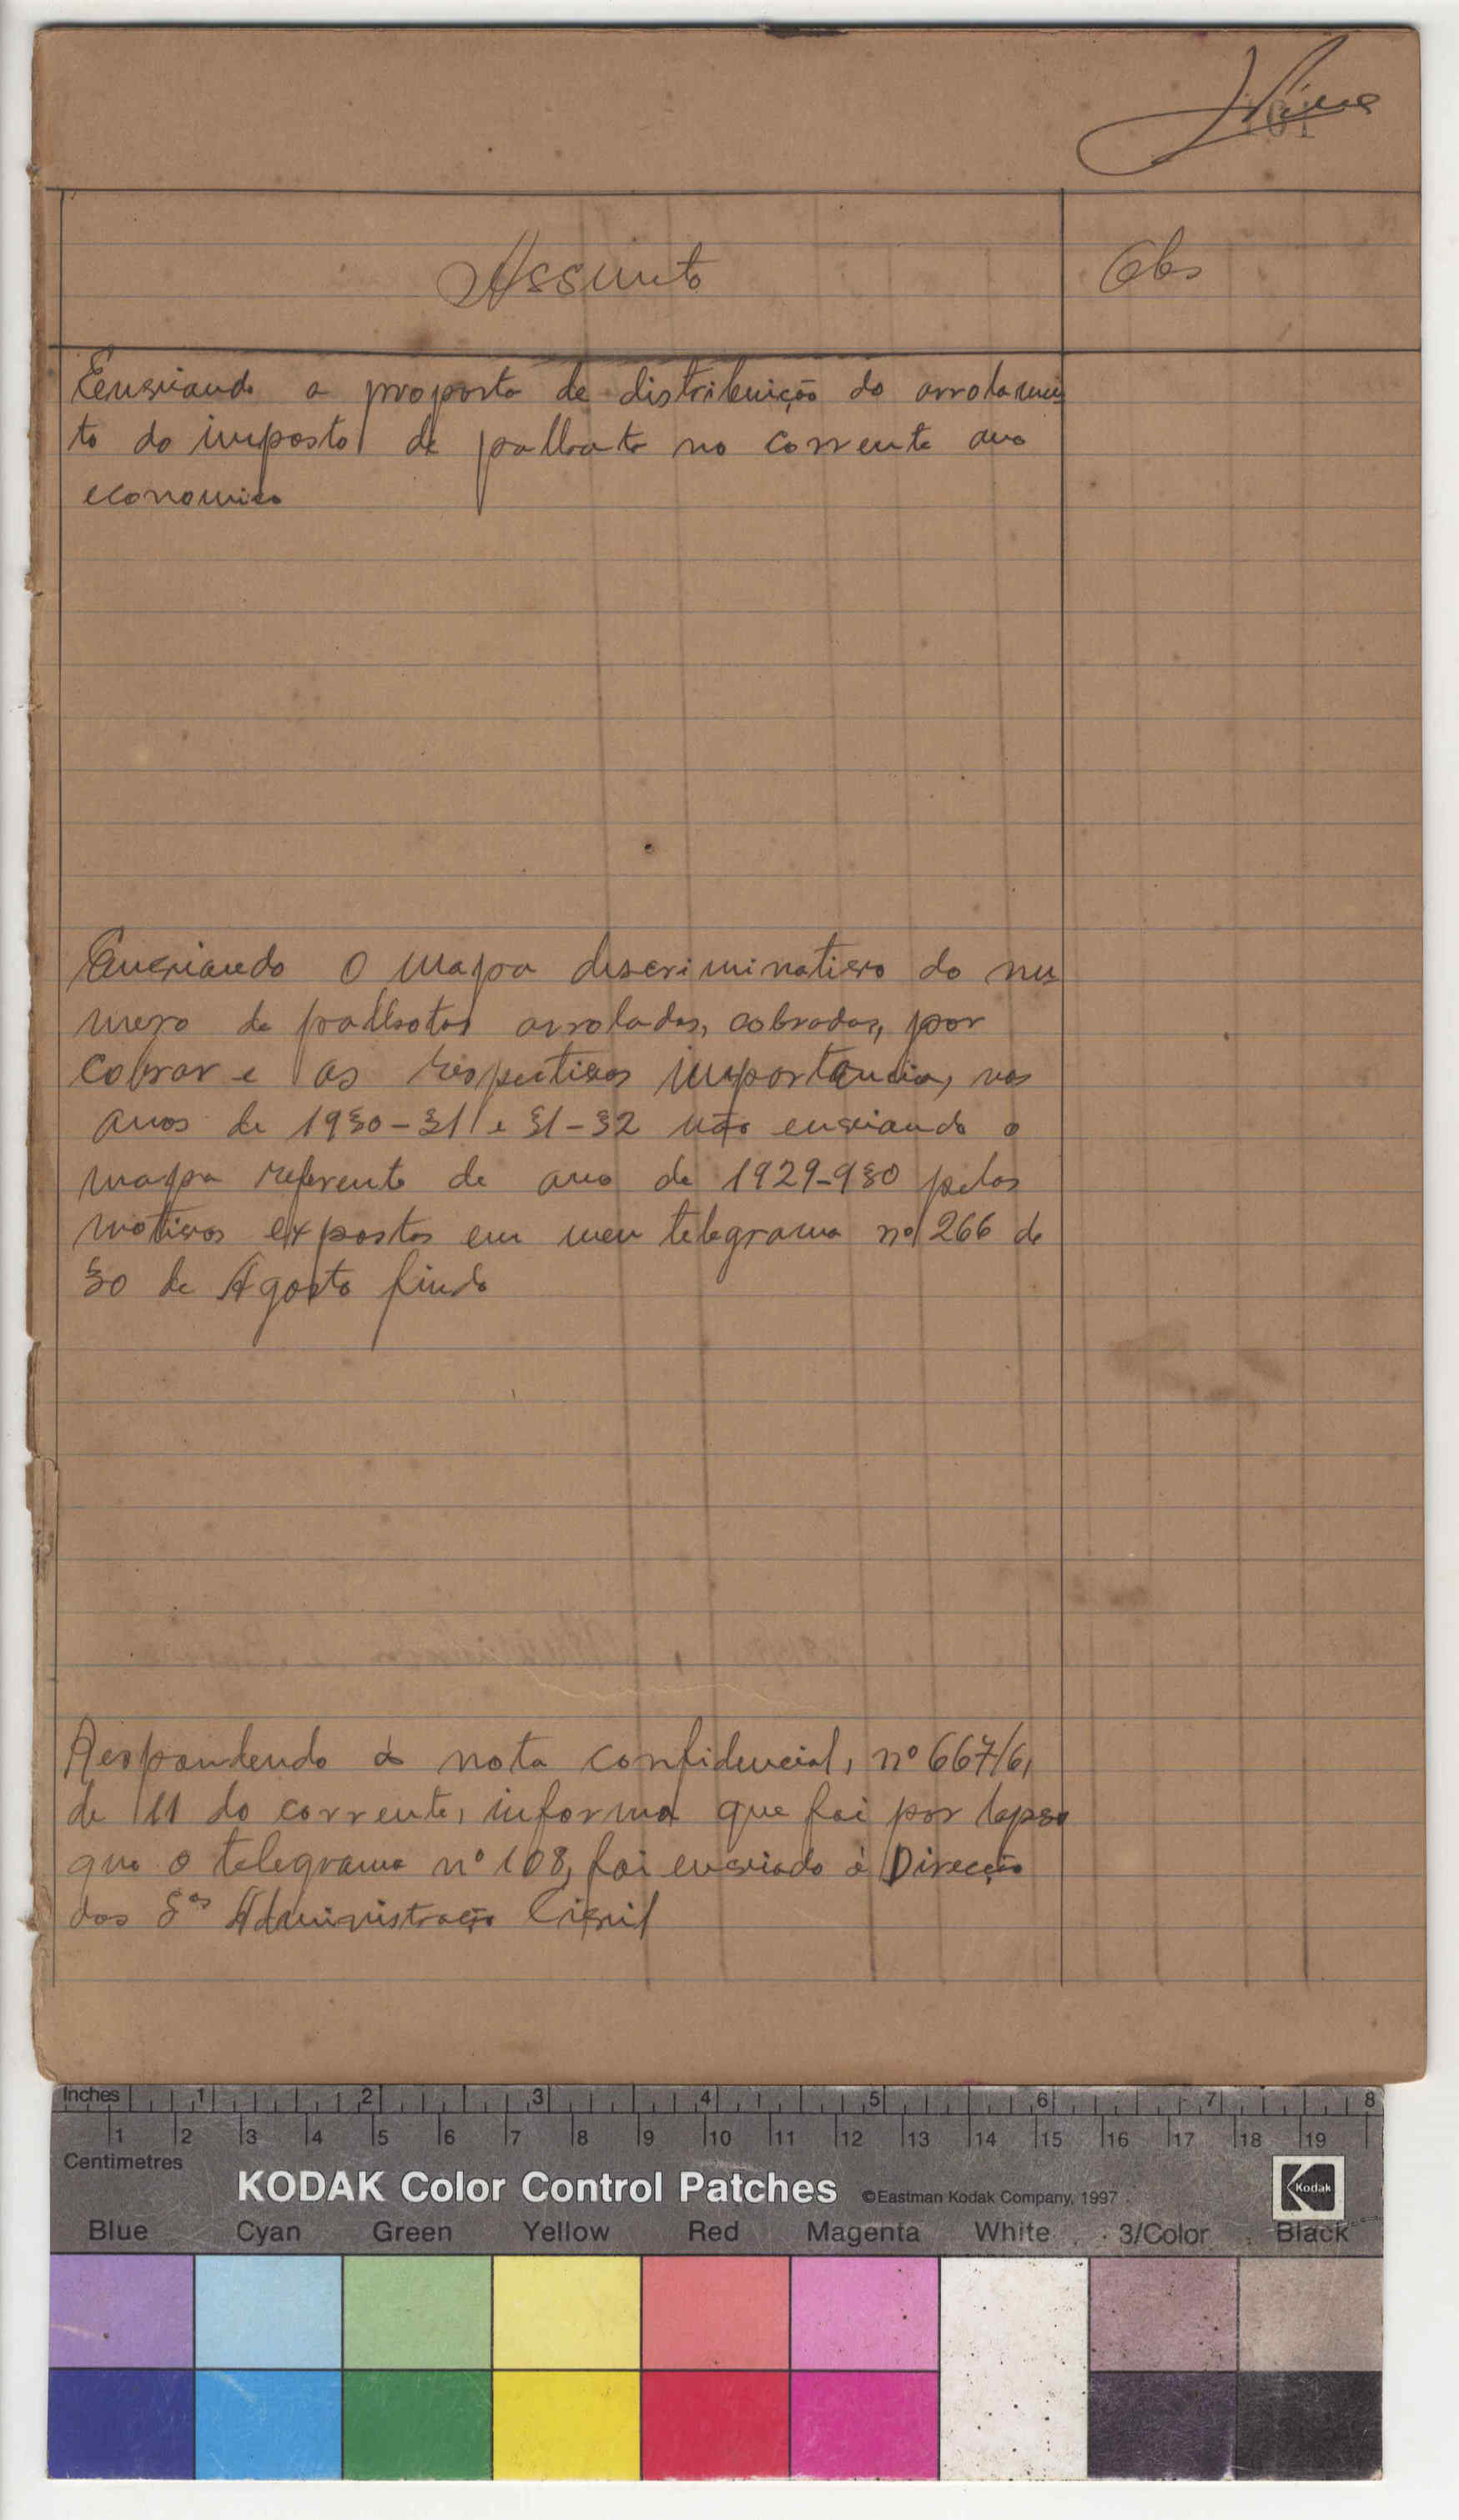 161
Assunto
Obs
Eenviando a proposta de distribuição do arrolamen
to do imposto de palhota no corrente ano
economico
Enviando o mapa descriminativo do nu
mero de palhotas arroladas, cobradas, por
cobrar e as respectivas importancias, nos
anos de 1930-31 e 31-32 não enviando o
mapa referente de ano de 1929-930 pelos
motivos expostos em meu telegrama nº 266 de
30 de Agosto findo
Respondendo á nota confidencial, nº 667/6,
de 11 do corrente, informa que foi por lapso
que o telegrama nº 108, foi enviado á Direcção
dos Sos Administração Civil
Inches 1 2 3 4 5 6 7 8
1 2 3 4 5 6 7 8 9 10 11 12 13 14 15 16 17 18 19
Centimetres
KODAK Color Control Patches ©Eastman Kodak Company, 1997 Kodak
Blue Cyan Green Yellow Red Magenta White 3/Color Black